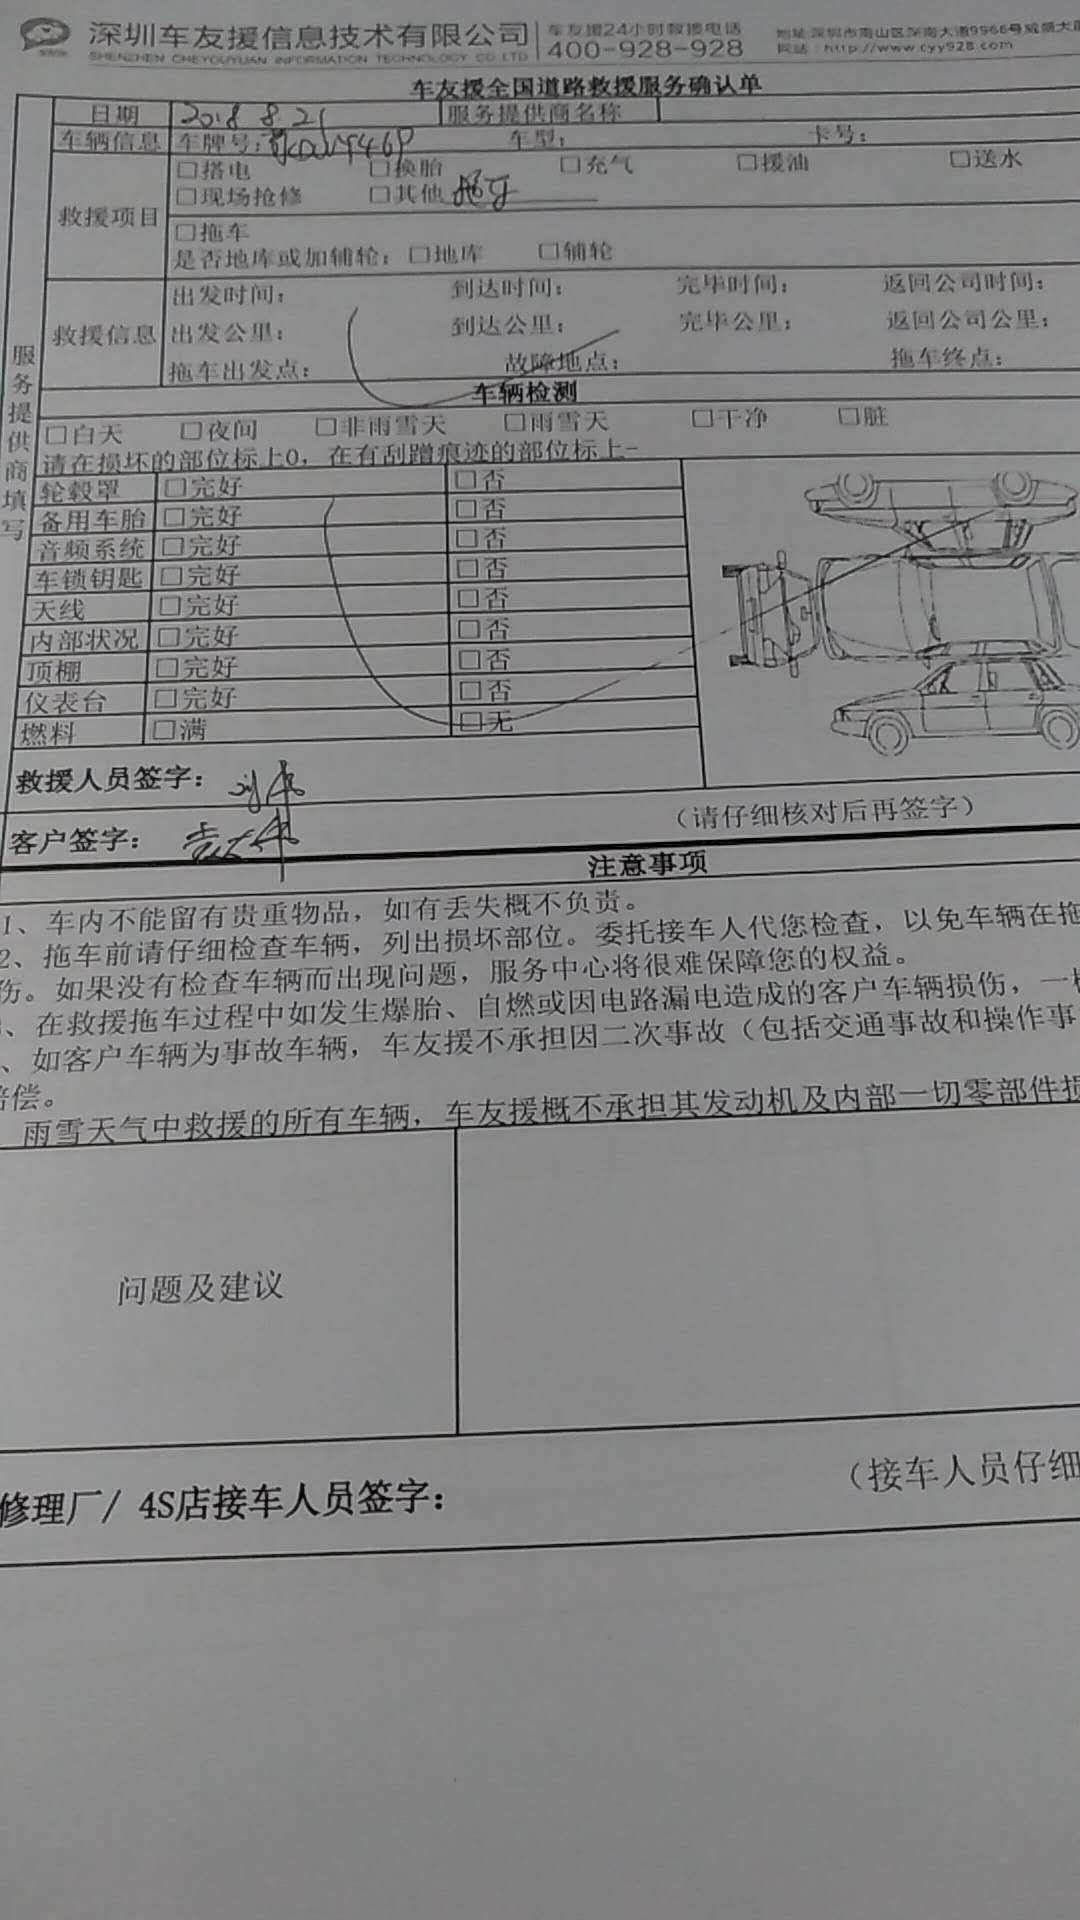 深圳车友援信息技术有限公司 车友援24小时救援电话 地址:深圳市南山区深南大道9966号威盛大
SHENZHEN CHEYOUYUAN INFORMATION TECHNOLOGY CO.,LTD 400-928-928 网站:http://www.cyy928.com
车友援全国道路救援服务确认单
日期 2018 8 21 服务提供商名称
车辆信息 车牌号: 车型: 卡号:
救援项目
□搭电 □换胎 □充气 □援油 □送水
□现场抢修 □其他
□拖车
是否地库或加辅轮: □地库 □辅轮
救援信息
出发时间: 到达时间: 完毕时间: 返回公司时间:
出发公里: 到达公里: 完毕公里: 返回公司公里:
拖车出发点: 故障地点: 拖车终点:
服务提供商填写
车辆检测
□白天 □夜间 □非雨雪天 □雨雪天 □干净 □脏
请在损坏的部位标上0, 在有刮蹭痕迹的部位标上-
轮毂罩 □完好 □否
备用车胎 □完好 □否
音频系统 □完好 □否
车锁钥匙 □完好 □否
天线 □完好 □否
内部状况 □完好 □否
顶棚 □完好 □否
仪表台 □完好 □否
燃料 □满 □无
救援人员签字:
客户签字: (请仔细核对后再签字)
注意事项
1、车内不能留有贵重物品, 如有丢失概不负责。
2、拖车前请仔细检查车辆, 列出损坏部位。委托接车人代您检查, 以免车辆在拖
伤。如果没有检查车辆而出现问题, 服务中心将很难保障您的权益。
、在救援拖车过程中如发生爆胎、自燃或因电路漏电造成的客户车辆损伤, 一
、如客户车辆为事故车辆, 车友援不承担因二次事故(包括交通事故和操作事
赔偿。
雨雪天气中救援的所有车辆, 车友援概不承担其发动机及内部一切零部件损
问题及建议
修理厂/ 4S店接车人员签字: (接车人员仔细